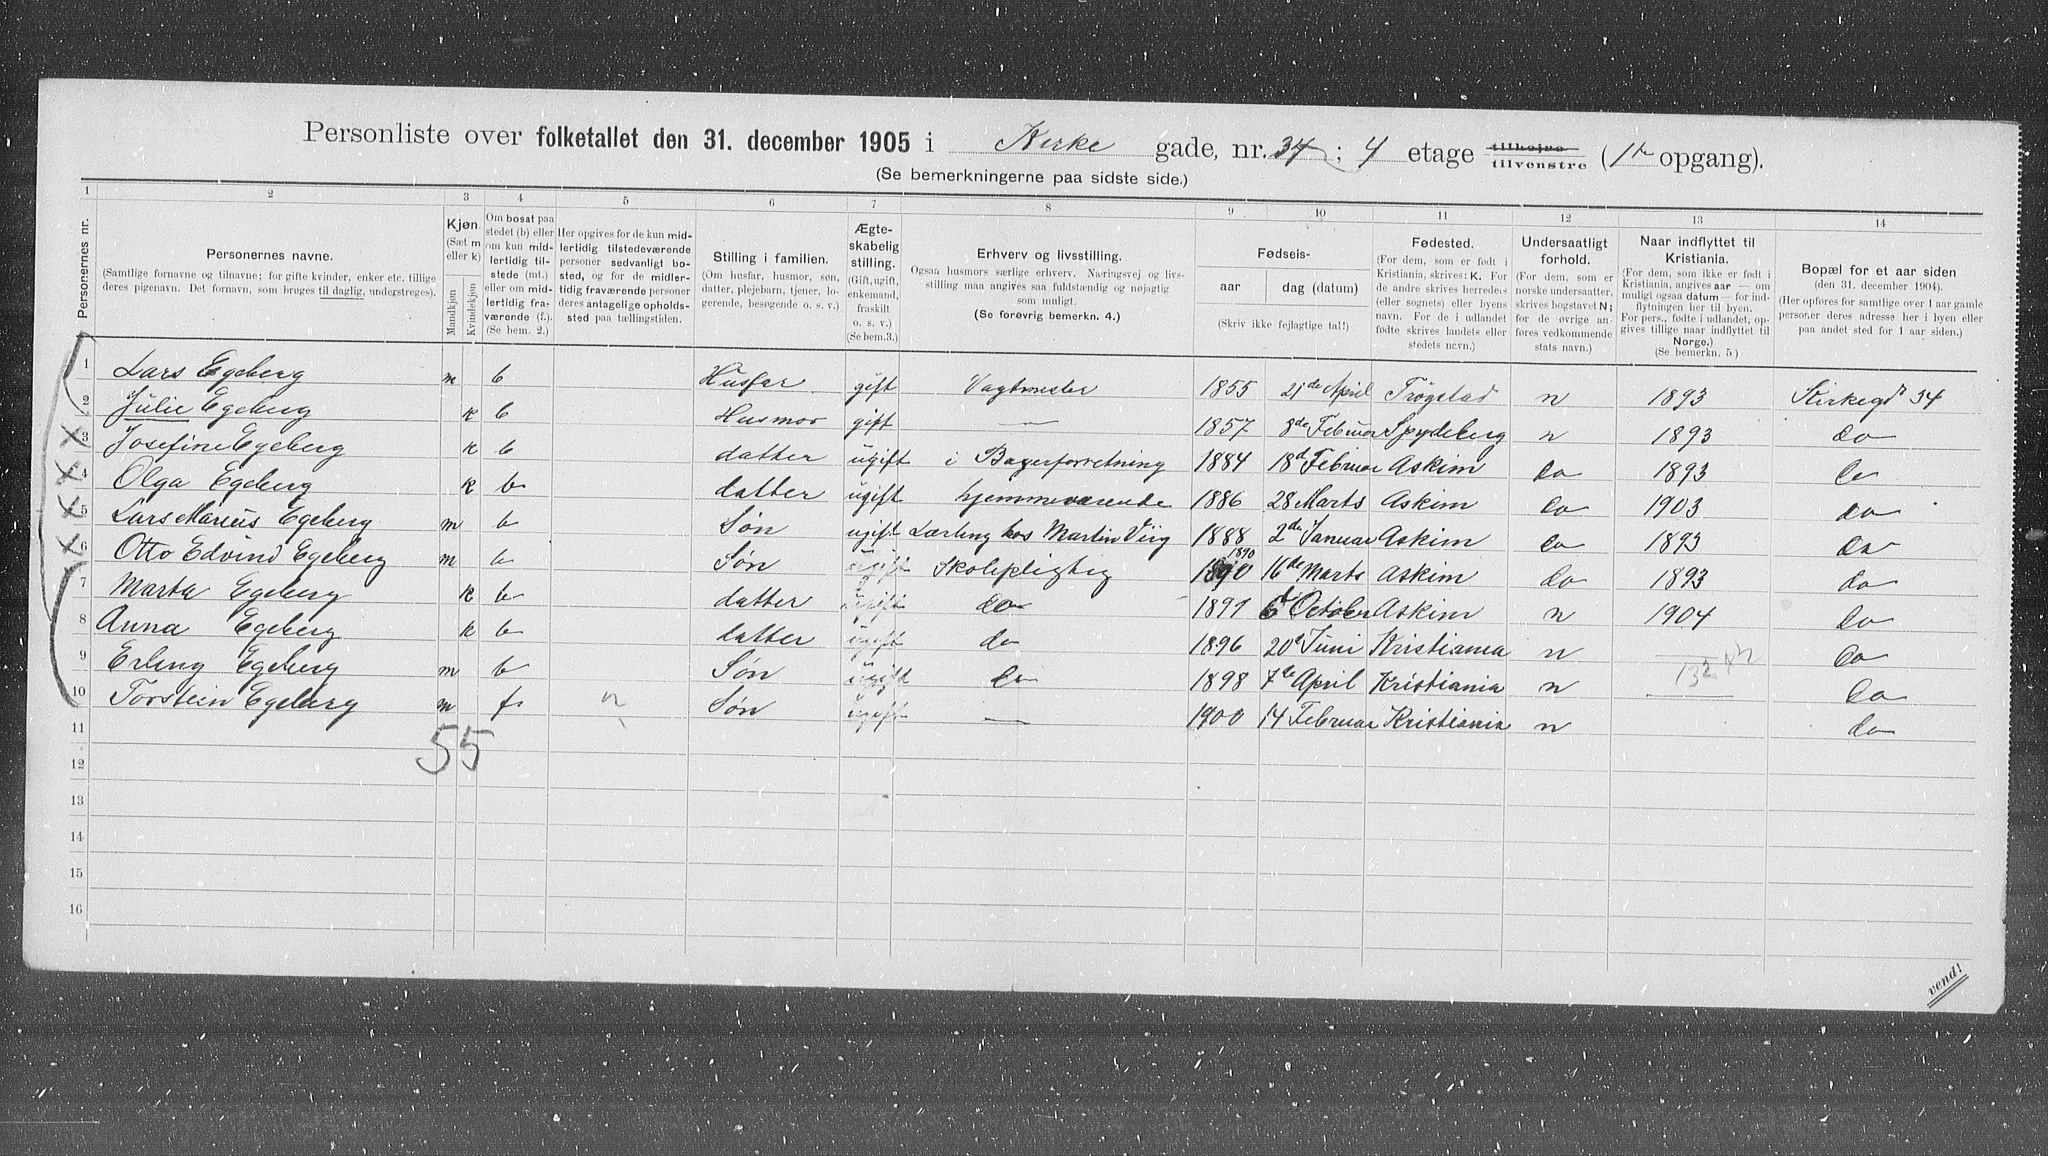 Personliste over folketallet den 31. december 1905 i Kirke gade, nr. 34; 4 etage tilhøjre tilvenstre (1ste opgang).
(Se bemerkningerne paa sidste side.)
1 2 3 4 5 6 7 8 9 10 11 12 13 14
Personernes nr.
Personernes navne.
(Samtlige fornavne og tilnavne; for gifte kvinder, enker etc. tillige
deres pigenavn. Det fornavn, som bruges til daglig, understreges).
Kjøn.
(Sæt m
eller k)
Mandkjøn
Kvindekjøn
Om bosat paa
stedet (b) eller
om kun mid-
lertidig til-
stede (mt.)
eller om mid-
lertidig fra-
værende (f.).
(Se bem. 2.)
Her opgives for de kun mid-
lertidig tilstedeværende
personer sedvanlig bo-
sted, og for de midler-
tidig fraværende personer
deres antagelige opholds-
sted paa tællingstiden.
Stilling i familien.
(Om husfar, husmor, søn,
datter, plejebarn, tjener, lo-
gerende, besøgende o. s. v.)
Ægte-
skabelig
stilling.
(Gift, ugift,
enkemand,
fraskilt
o. s. v.)
(Se bem.3.)
Erhverv og livsstilling.
Ogsaa husmors særlige erhverv. Næringsvej og livs-
stilling maa angives saa fuldstændig og nøjagtig
som muligt.
(Se forøvrig bemerkn. 4.)
Fødsels-
aar dag (datum)
(Skriv ikke fejlagtige tal!)
Fødested.
(For dem, som er født i
Kristiania, skrives: K. For
de andre skrives herredets
(eller sognets) eller byens
navn. For de i udlandet
fødte skrives landets eller
stedets navn.)
Undersaatligt
forhold.
(For dem, som er
norske undersaatter,
skrives bogstavet N;
for de øvrige an-
føres vedkommende
stats navn.)
Naar indflyttet til
Kristiania.
(For dem, som ikke er født i
Kristiania, angives aar — om
muligt ogsaa datum — for ind-
flytningen her til byen.
For pers., fødte i udlandet, op-
gives tillige naar indflyttet til
Norge.)
(Se bemerkn. 5)
Bopæl for et aar siden
(den 31. december 1904).
(Her opføres for samtlige over 1 aar gamle
personer deres adresse her i byen eller
paa andet sted for 1 aar siden.)
1 Lars Egeberg m b Husfar gift Vagtmester 1855 21de April Trøgstad n 1893 Kirkegd 34
2 Julie Egeberg k b Husmor gift — 1857 8de Februar Spydeberg n 1893 do
3 Josefine Egeberg k b datter ugift i Bagerforretning 1884 18d Februar Askim do 1893 do
4 Olga Egeberg k b datter ugift hjemmeværende 1886 28 Marts Askim do 1903 do
5 Lars Marius Egeberg m b Søn ugift Lærling hos Martin Viig 1888 2de Januar Askim do 1893 do
6 Otto Edvind Egeberg m b Søn ugift Skolepligtig 1890 1890 16de Marts Askim do 1893 do
7 Marta Egeberg k b datter ugift do 1891 6d October Askim n 1904 do
8 Anna Egeberg k b datter ugift do 1896 20d Juni Kristiania n — do
9 Erling Egeberg m b Søn ugift do 1898 7de April Kristiania n — do
10 Torstein Egeberg m f Søn ugift — 1900 14 Februar Kristiania n do
11
55
12
13
14
15
16
vend!